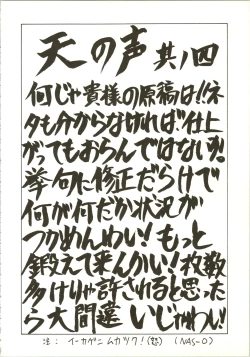 天の声 其ノ四
何じゃ貴様の原稿は!!ネ
タも分からなければ仕上
がってもおらんではないか!!
挙句に修正だらけで
何が何だか状況が
つかめんわい! もっと
鍛えて来んかい! 枚数
多けりゃ許されると思った
ら大間違いじゃわい!
注: イーカゲンムカツク! (怒) (NAS-O)